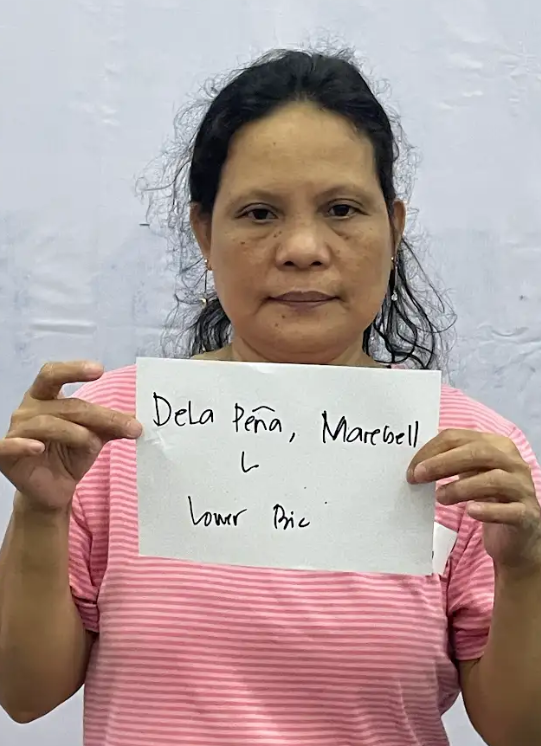 Dela Peña, Marebell
L
Lower Bic